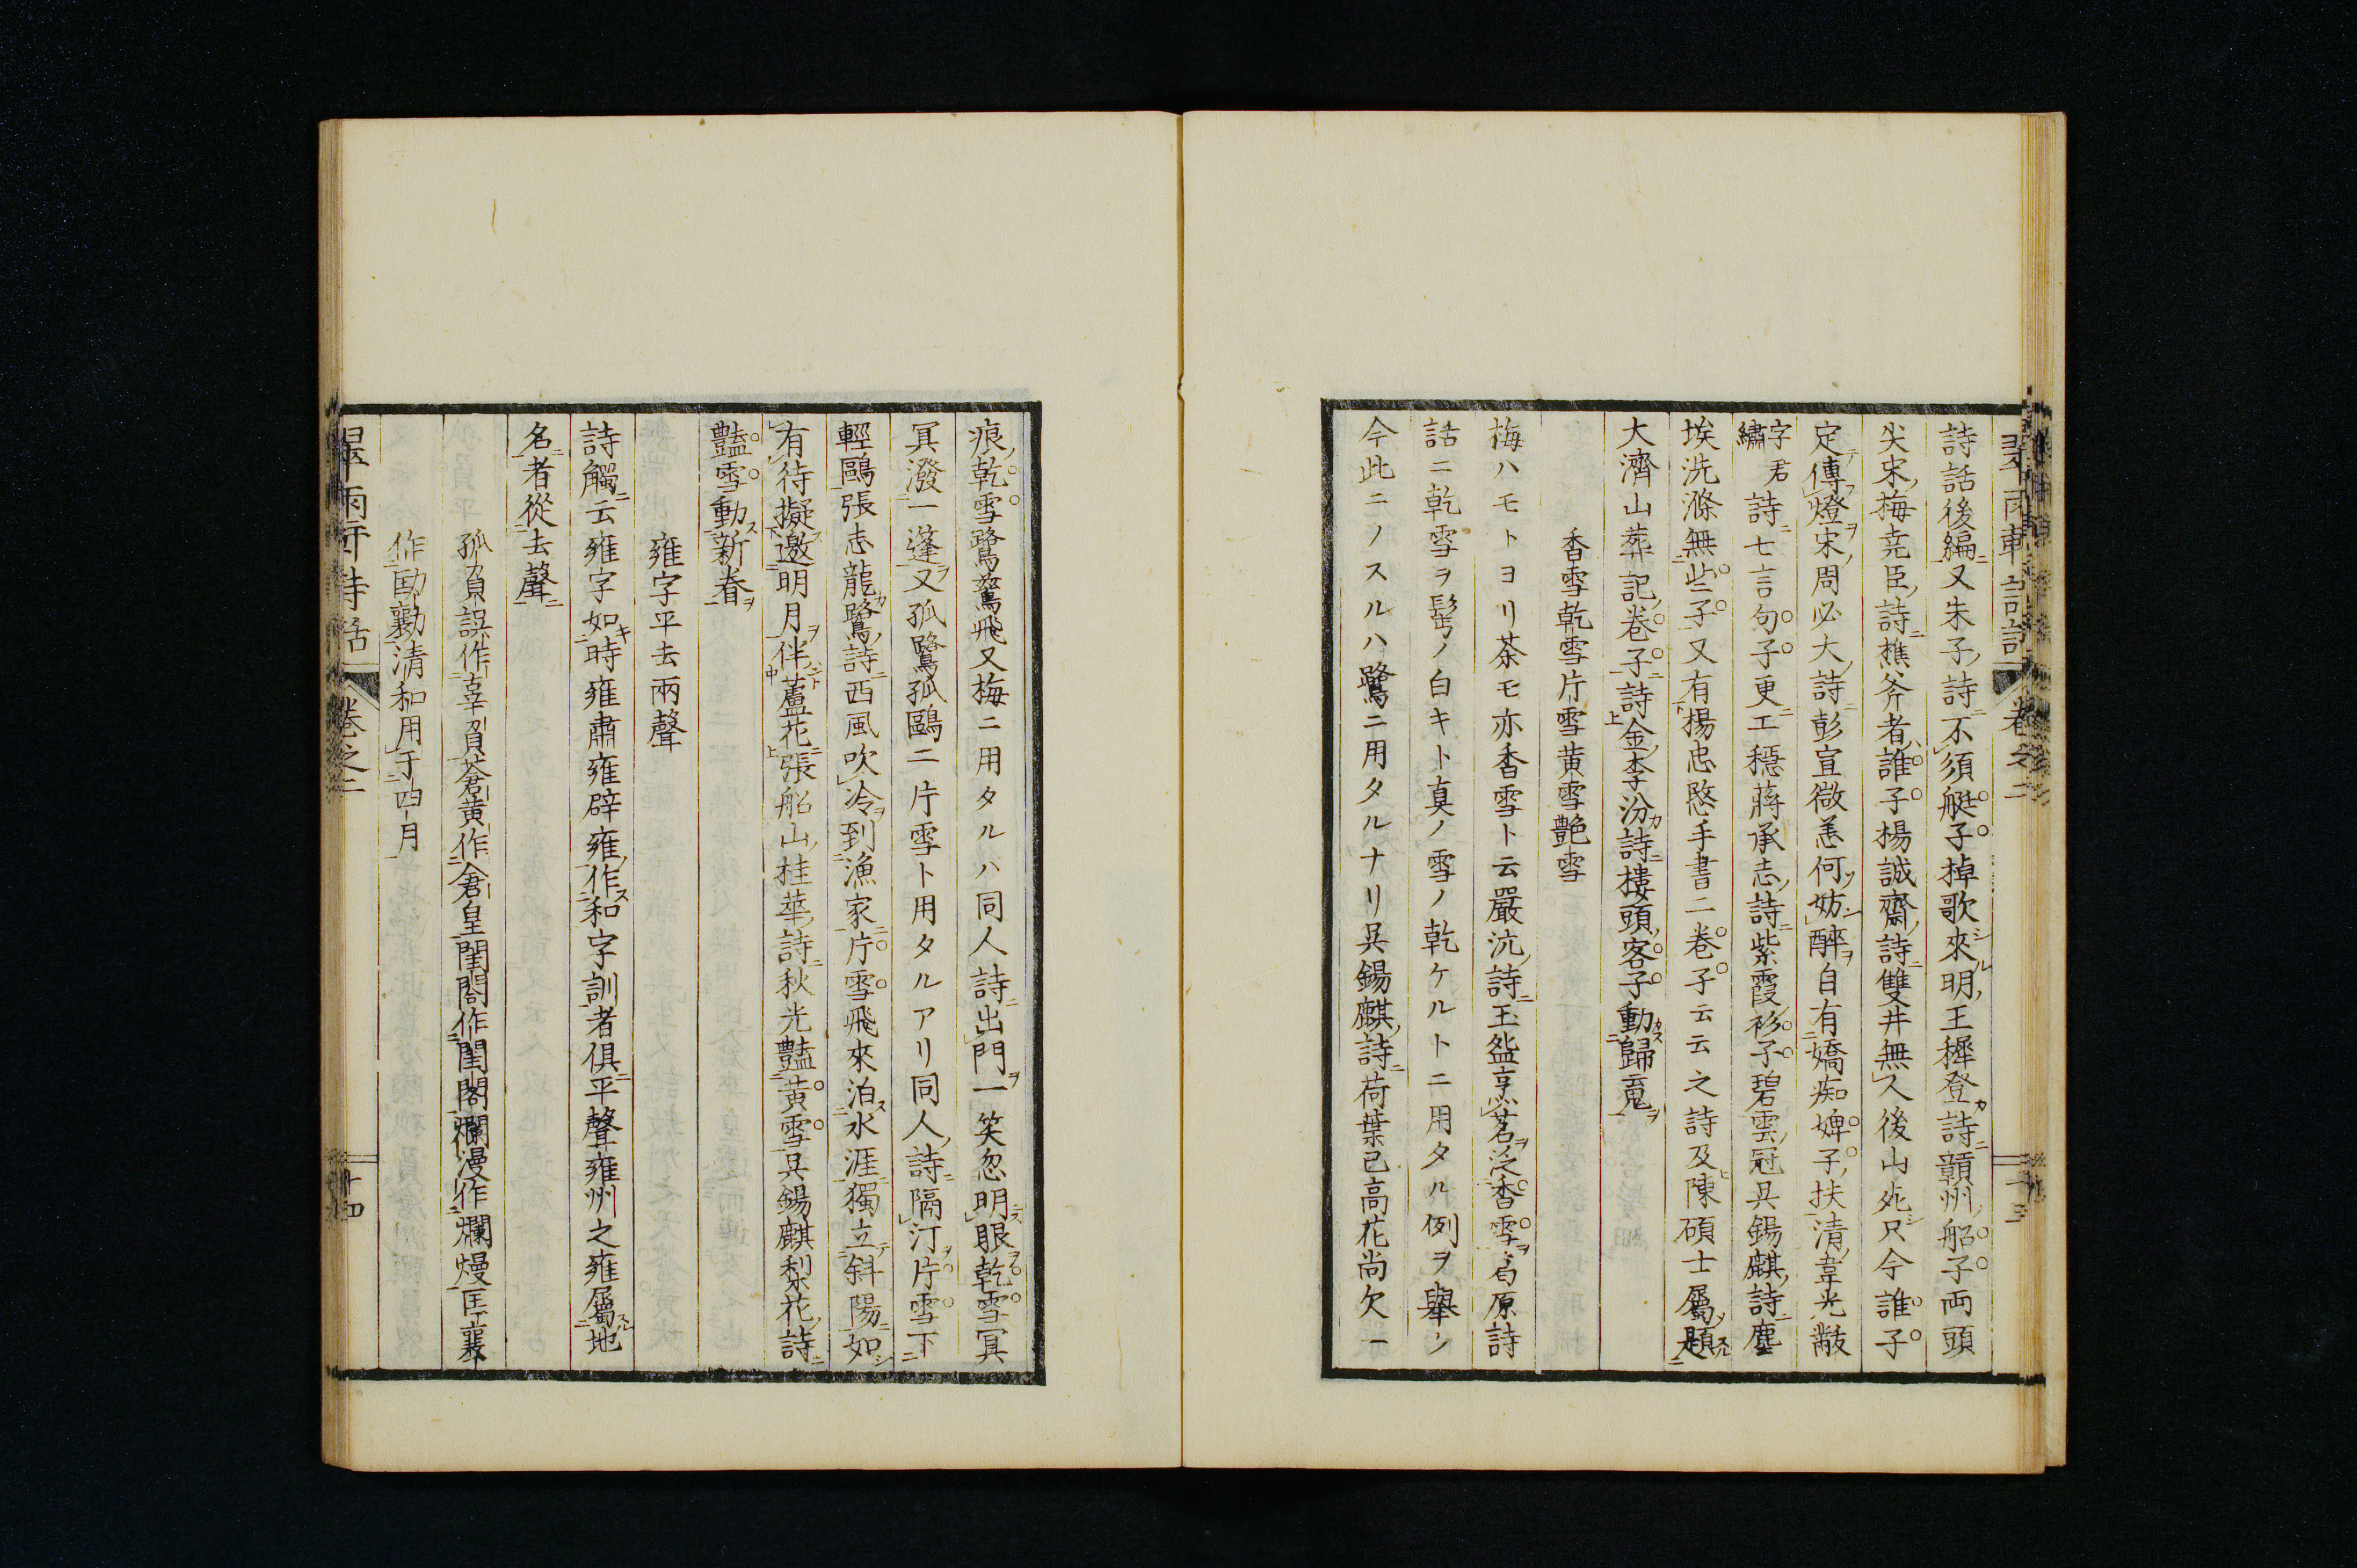 詩話後編又朱子詩不須艇子棹歌來明王穉登詩贛州船子両頭
尖宋梅堯臣詩樵斧者誰子楊誠齋詩雙井無人後山死只今誰子
定傳燈宋周必大詩彭宣微恙何妨醉自有嬌痴婢子扶清韋光黻
字君繡詩七言句子更工穏蔣承志詩紫霞衫子碧雲冠呉錫麒詩塵
埃洗滌無些子又有楊忠愍手書二卷子云云之詩及陳碩士屬題
大濟山葬記卷子詩金李汾詩樓頭客子動歸寬
香雪乾雪片雪黄雪艶雪
梅ハモトヨリ茶モ亦香雪ト云嚴沆詩玉盌烹茗泛香雪ヲ原詩
話ニ乾雪ヲ髩ノ白キト真ノ雪ノ乾ケルトニ用タル例ヲ舉ク
今此ニノスルハ鷺ニ用タルナリ呉錫麒詩荷葉已高花尚欠一
痕乾雪鷺鷥飛又梅ニ用タルハ同人詩出門一笑忽明眼乾雪冥
冥潑一蓬又孤鷺孤鷗ニ片雪ト用タルアリ同人詩隔汀片雪下
輕鷗張志龍鷺詩西風吹冷到漁家片雪飛來泊水涯獨立斜陽如
有待擬邀明月伴蘆花張船山桂華詩秋光豔黄雪呉錫麒梨花詩
豔雪動新春
雍字平去兩聲
詩觸云雍字如時雍肅雍辟雍作和字訓者倶平聲雍州之雍屬地
名者從去聲
孤負誤作辜負蒼黄作倉皇閨閤作閨閣爛漫作爛熳匡襄
作勷清和用于四月
卷之二
十四